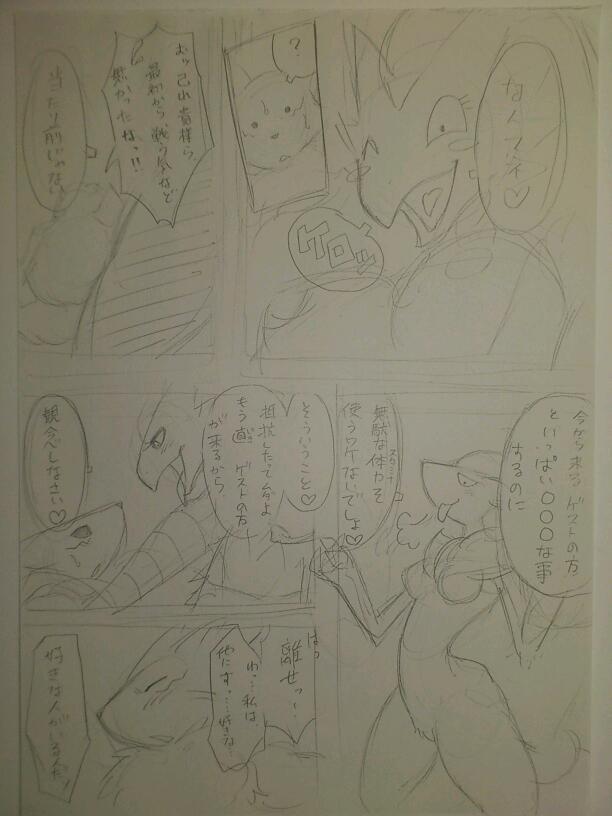 なんてネ♡
?
ケロッ
おッ己ㇾ貴様ら
最初から戦う気など
無かったなっ!!
当たり前じゃない
今から来るゲストの方
といっぱい〇〇〇な事
するのに
無駄な体力を
スタミナ
使うワケないでしょ♡
そういうこと♡
抵抗したってダメよ
もう直ゲストの方
が来るから
観念しなさい♡
はっ
離せっ…
わっ…私は、
他にすっ…好きな…
好きな人がいるんだッ